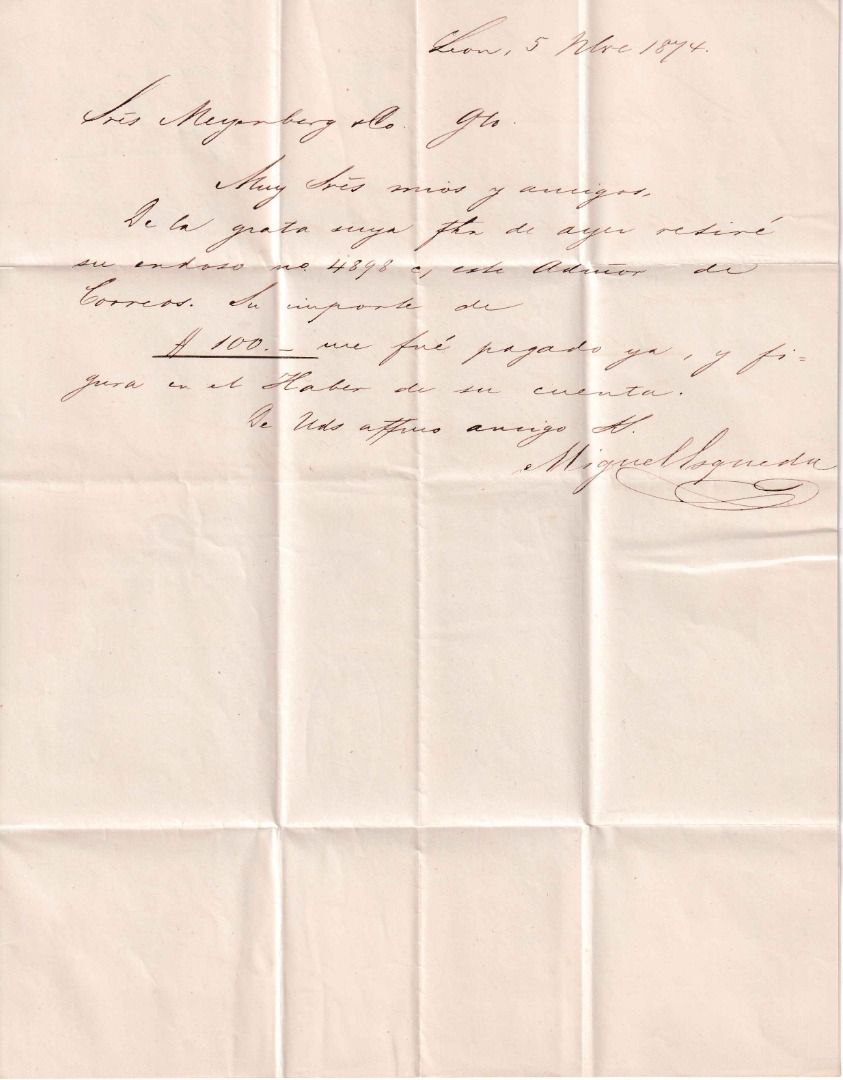 Leon, 5 Nbre 1874.
Srēs Meyenberg &Co. Gto.
Muy Srēs mios y amigos,
De la grata suya fha de ayer retiré
su endoso no. 4898 c, este Admōr de
Correos. Su importe de
$ 100.— me fué pagado ya, y fi=
gura en el Haber de su cuenta.
De Uds affmo amigo S.
Miguel Esqueda